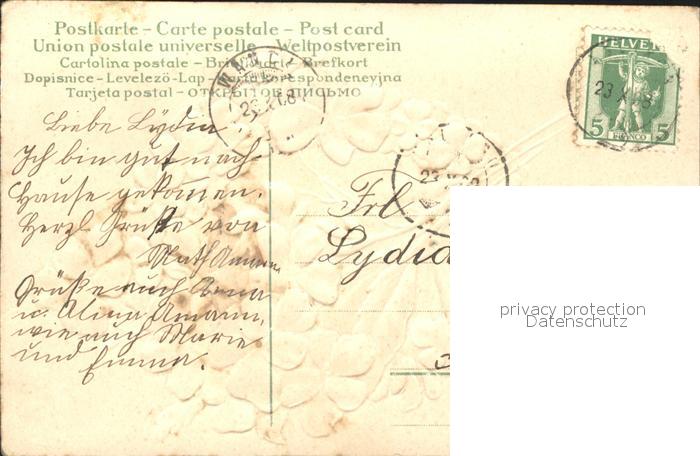 Postkarte – Carte postale – Post card
Union postale universelle – Weltpostverein
Cartolina postale – Brief kaart – Brefkort
Dopisnice – Levelező-Lap – Karta korespondencyjna
Tarjeta postal – ОТКРЫТОЕ ПИСЬМО
HELVETIA
23 X
5 FRANCO 5
Liebe Lydia
Ich bin gut nach
Hause gekomen.
Herzl Grüße von
Math Amann
Grüße auch Anna
u. Alina Amann,
wie auch Marie
und Emma.
Frl
Lydia
privacy protection
Datenschutz